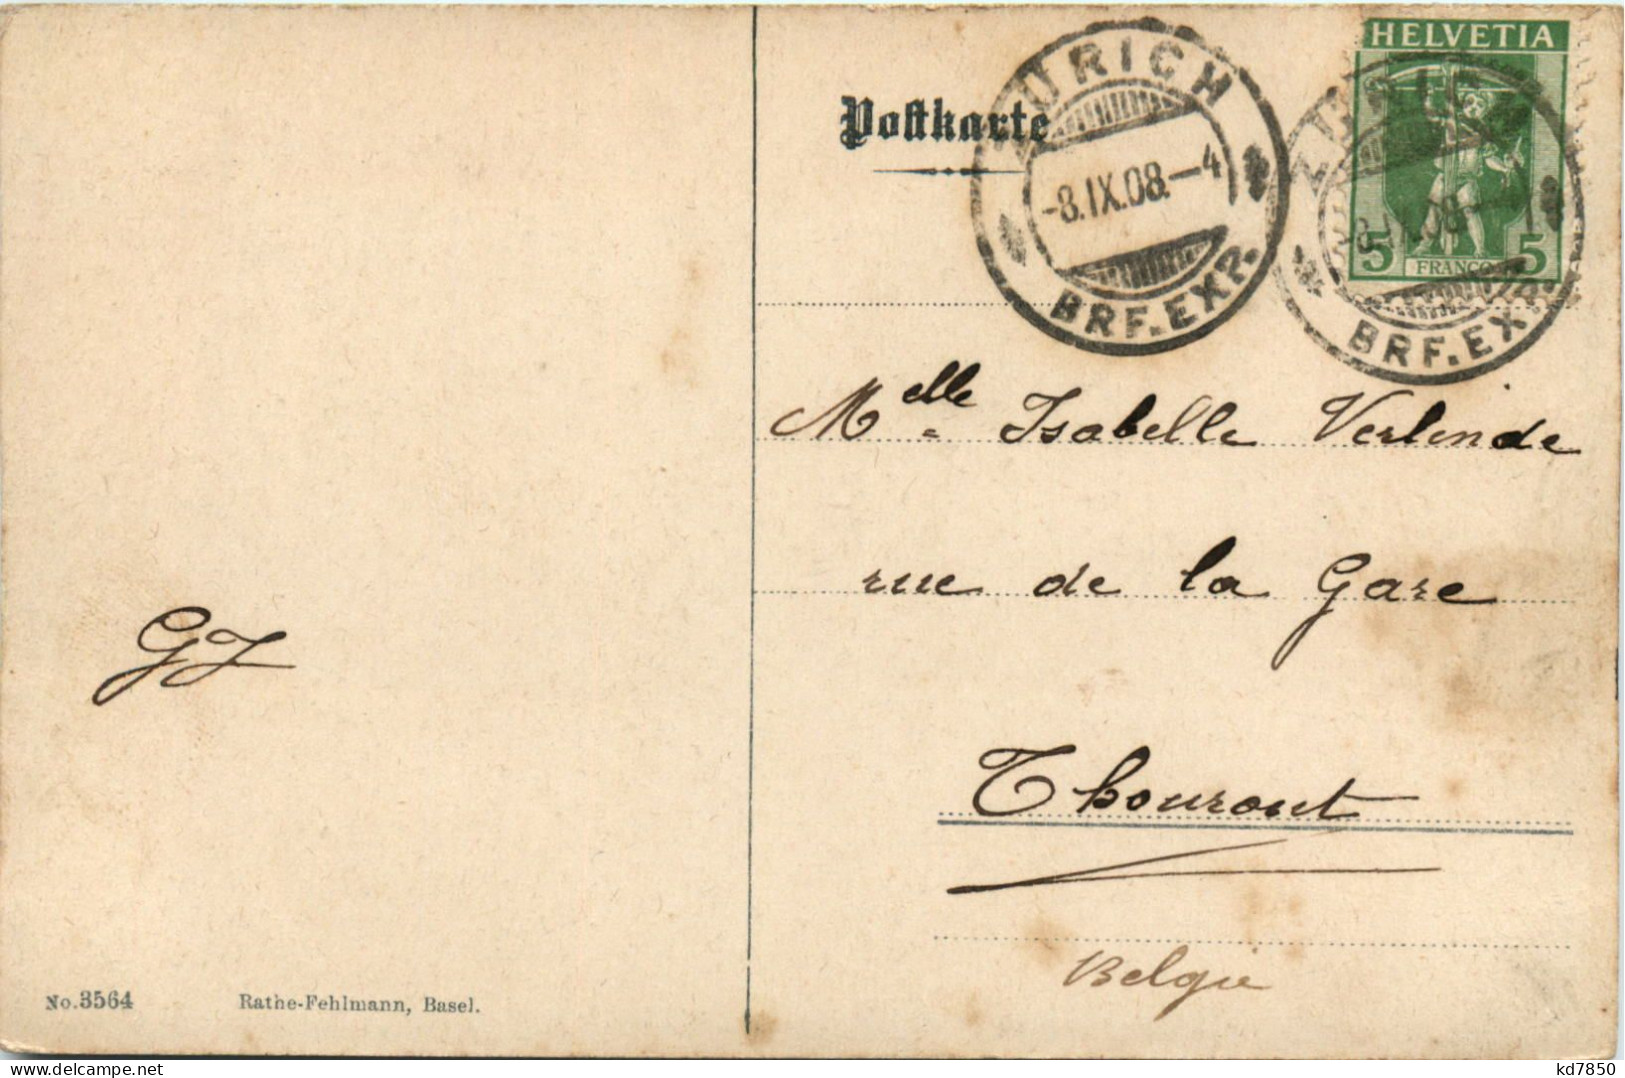 HELVETIA
5 FRANCO 5
ZÜRICH
-8.IX.08.-4
BRF.EXP.
ZÜRICH
-8.IX.08-
BRF.EX
Postkarte
Melle Isabelle Verlinde
rue de la Gare
Thourout
Belgie
GJ
No. 3564 Rathe-Fehlmann, Basel.
kd7850